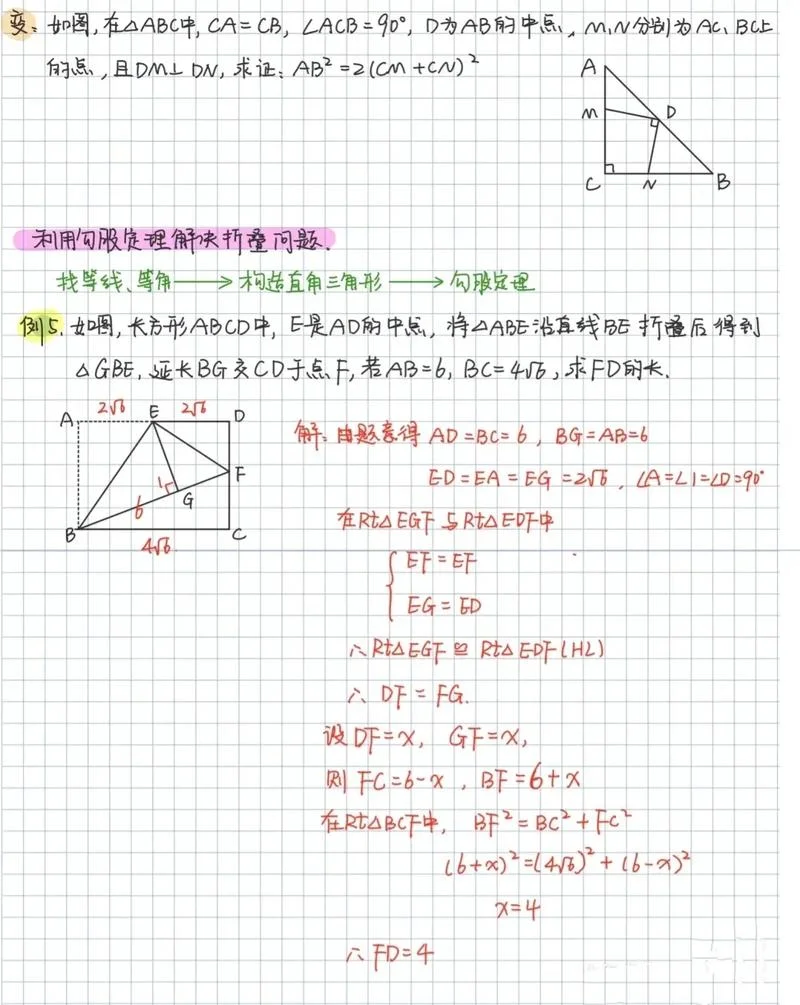 变：如图，在△ABC中，CA=CB，∠ACB=90°，D为AB的中点，M、N分别为AC、BC上
的点，且DM⊥DN，求证：AB²=2(CM+CN)²
A
M
D
C
N
B
利用勾股定理解决折叠问题.
找等线、等角→构造直角三角形→勾股定理
例5. 如图，长方形ABCD中，E是AD的中点，将△ABE沿直线BE折叠后得到
△GBE，延长BG交CD于点F，若AB=6，BC=4√6，求FD的长.
2√6
2√6
A
E
D
F
1
G
6
B
C
4√6
解：由题意得 AD=BC=6，BG=AB=6
ED=EA=EG=2√6，∠A=∠1=∠D=90°
在Rt△EGF与Rt△EDF中
{ EF=EF
EG=ED
∴Rt△EGF≌Rt△EDF(HL)
∴ DF=FG.
设DF=x， GF=x，
则 FC=6-x，BF=6+x
在Rt△BCF中， BF²=BC²+FC²
(6+x)²=(4√6)²+(6-x)²
x=4
∴FD=4